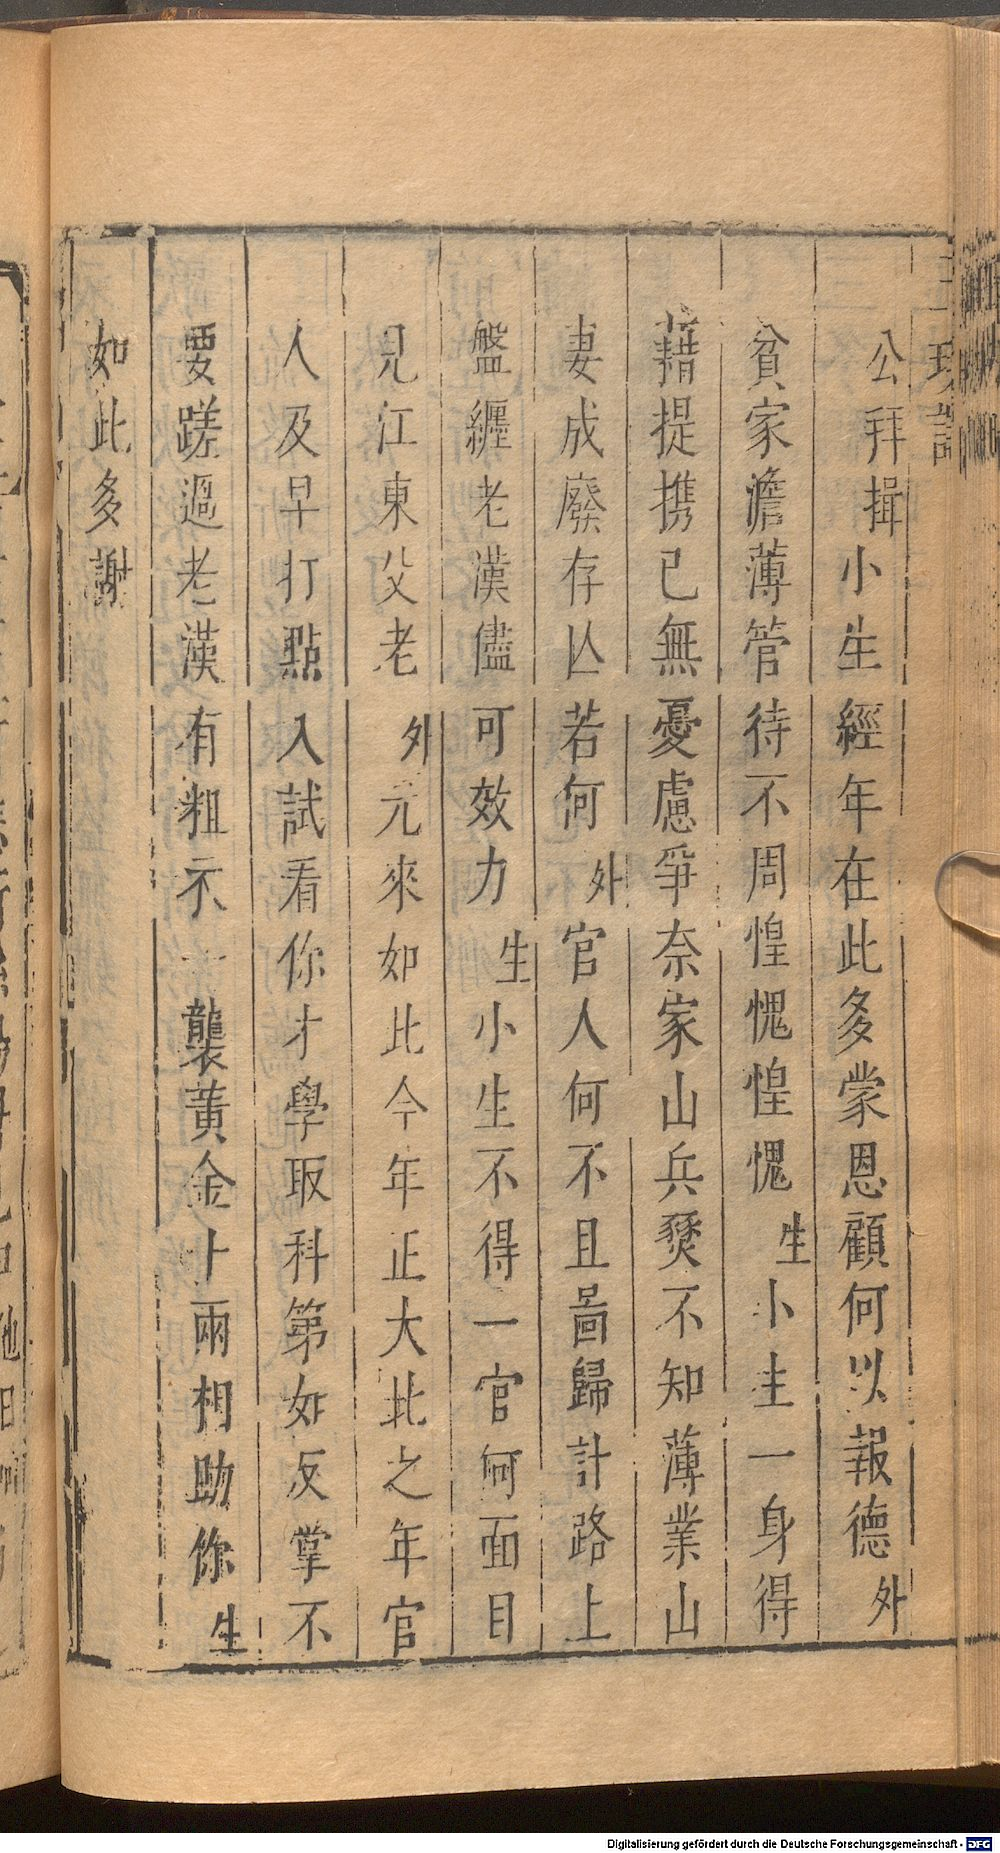 公拜揖小生經年在此多蒙恩顧何以報德外
貧家澹薄管待不周惶愧惶愧生小生一身得
藉提携已無憂慮爭奈家山兵燹不知薄業山
妻成廢存亾若何外官人何不且啚歸計路上
盤纏老漢儘可效力生小生不得一官何面目
見江東父老外元來如此今年正大比之年官
人及早打點入試看你才學取科第如反掌不
要蹉過老漢有粗衣一襲黃金十兩相助你生
如此多謝
Digitalisierung gefördert durch die Deutsche Forschungsgemeinschaft - DFG